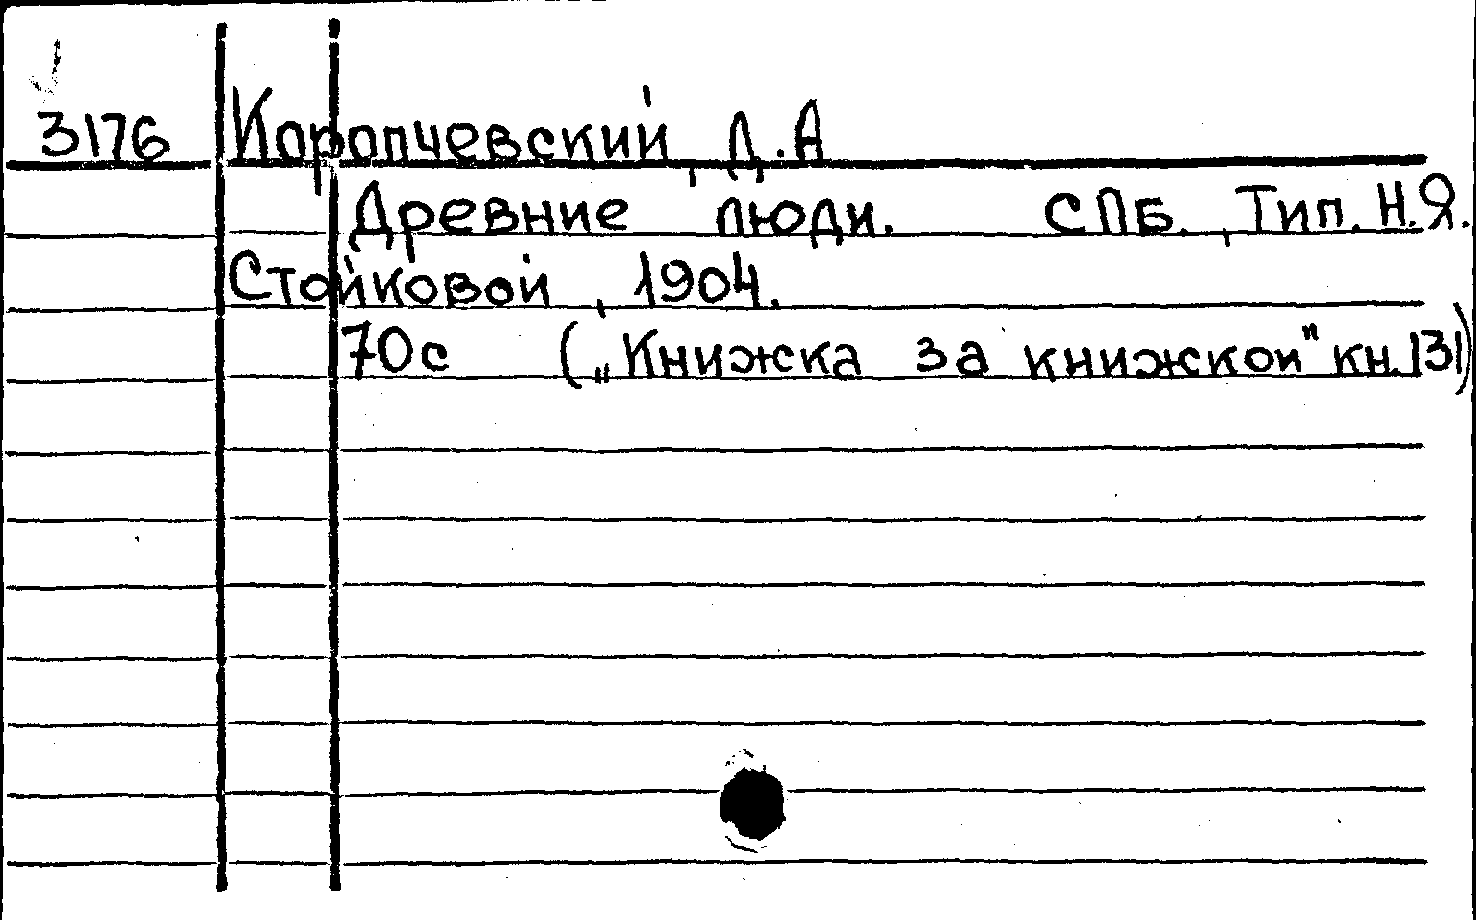 3176 Коропчевский, Д.А
Древние люди. СПБ., Тип. Н.Я.
Стойковой, 1904.
70с („Книжка за книжкои" кн.131)